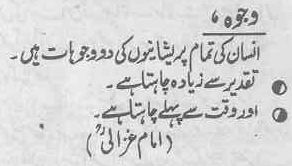 وجوہ،
انسان کی تمام پریشانیوں کی دو وجوہات ہیں۔
تقدیر سے زیادہ چاہتا ہے۔
اور وقت سے پہلے چاہتا ہے۔
(امام غزالیؒ)